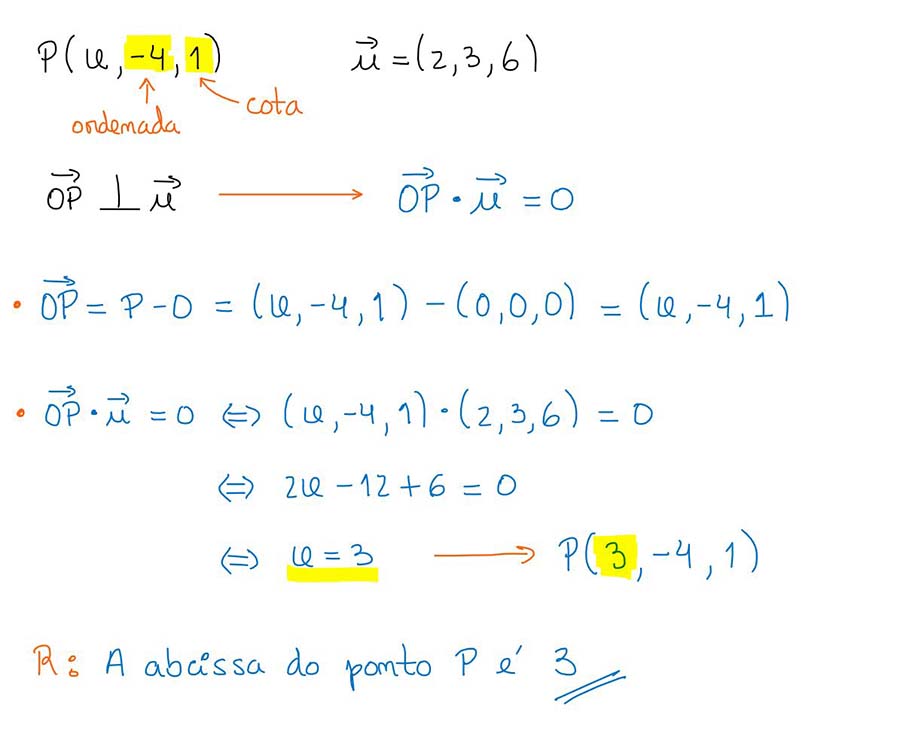 P(k, -4, 1) \vec{u} = (2, 3, 6)
ordenada cota
\vec{OP} ⊥ \vec{u} → \vec{OP} · \vec{u} = 0
• \vec{OP} = P - O = (k, -4, 1) - (0, 0, 0) = (k, -4, 1)
• \vec{OP} · \vec{u} = 0 ⇔ (k, -4, 1) · (2, 3, 6) = 0
⇔ 2k - 12 + 6 = 0
⇔ k = 3 → P(3, -4, 1)
R: A abcissa do ponto P é 3